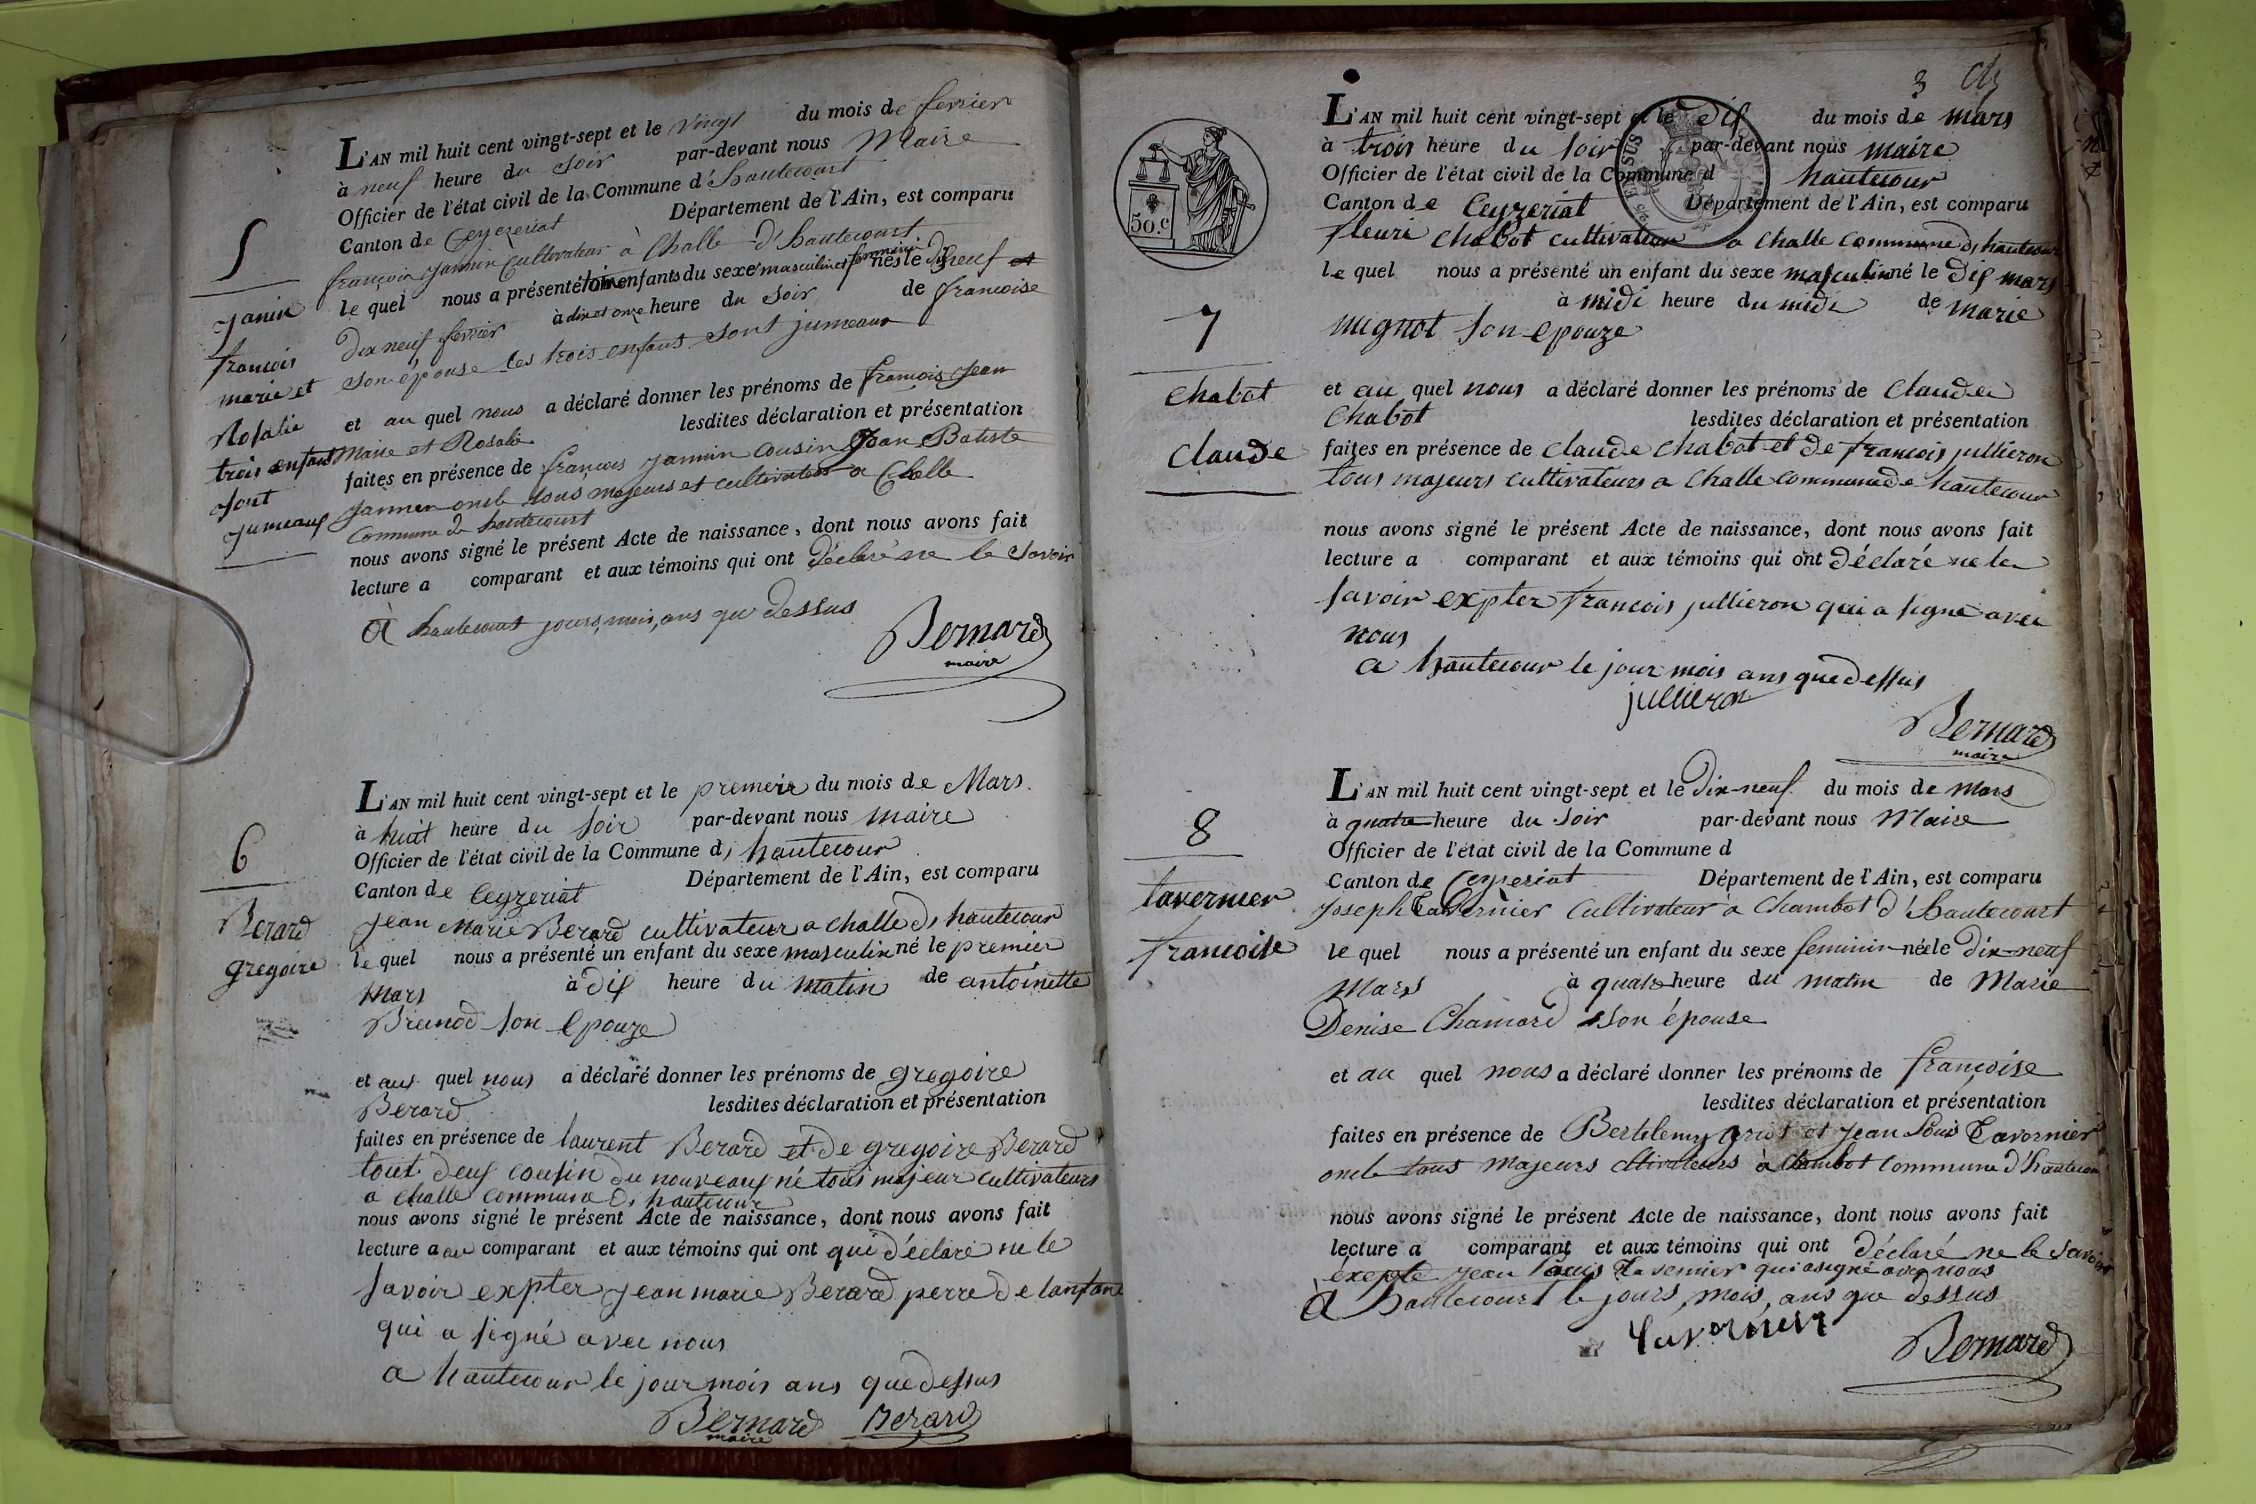 L'AN mil huit cent vingt-sept et le vingt du mois de fevrier
à neuf heure du soir par-devant nous Maire
Officier de l'état civil de la Commune d'hautecourt
Canton de Ceyzeriat Département de l'Ain, est comparu
françois Jannin Cultivateur à Challe d'hautecourt
le quel nous a présenté trois enfants du sexe masculin et feminin nés le dix neuf et
dix neuf fevrier à dix et onze heure du soir de francoise
son épouse les trois enfants sont jumeaux
et au quel nous a déclaré donner les prénoms de francois Jean
Marie et Rosalie lesdites déclaration et présentation
faites en présence de francois Jannin Cousin Jean Batiste
Jannin oncle tous majeurs et cultivateur a Challe
Commune de hautecourt
nous avons signé le présent Acte de naissance, dont nous avons fait
lecture a comparant et aux témoins qui ont déclaré ne le savoir
À hautecourt jours, mois, ans que dessus
Bernard
maire
5
Janin
francois
marie et
Rosalie
trois enfant
sont
jumeaux
L'AN mil huit cent vingt-sept et le premeir du mois de Mars
à huit heure du soir par-devant nous maire
Officier de l'état civil de la Commune d, hautecour
Canton de Ceyzeriat Département de l'Ain, est comparu
jean Marie Berard cultivateur a challe d, hautecour
le quel nous a présenté un enfant du sexe masculin né le premier
Mars à dix heure du matin de antoinette
Brunod son epouze
et aux quel nous a déclaré donner les prénoms de gregoire
Berard lesdites déclaration et présentation
faites en présence de laurent Berard et de gregoire Berard
tout deux cousin du nouveaux né tous majeur cultivateurs
a challe commune d, hautecour
nous avons signé le présent Acte de naissance, dont nous avons fait
lecture a au comparant et aux témoins qui ont qui déclaré ne le
savoir expter jean marie Berard perre de lanfant
qui a signé avec nous
a hautecour le jour mois ans que dessus
Bernard Berard
maire
6
Berard
gregoire
3
50.c
L'AN mil huit cent vingt-sept et le dix du mois de mars
à trois heure du soir par-devant nous maire
Officier de l'état civil de la Commune d hautecour
Canton de Ceyzeriat Département de l'Ain, est comparu
fleuri chabot cultivateur a challe commune d, hautecour
le quel nous a présenté un enfant du sexe masculin né le dix mars
à midi heure du midi de marie
mignot son epouze
et au quel nous a déclaré donner les prénoms de claude
Chabot lesdites déclaration et présentation
faites en présence de claude chabot et de francois jullieron
tous majeurs cultivateurs a challe commune de hautecour
nous avons signé le présent Acte de naissance, dont nous avons fait
lecture a comparant et aux témoins qui ont déclaré ne le
savoir expter francois jullieron qui a signé avec
nous
a hautecour le jour mois ans que dessus
jullieron
Bernard
maire
7
chabot
claude
L'AN mil huit cent vingt-sept et le dix-neuf du mois de mars
à quatre heure du soir par-devant nous Maire
Officier de l'état civil de la Commune d
Canton de Ceyzeriat Département de l'Ain, est comparu
Joseph Tavernier Cultivateur à Chambot d'hautecourt
le quel nous a présenté un enfant du sexe feminin née le dix-neuf
Mars à quatre heure du matin de Marie
Denise Chanard son épouse
et au quel nous a déclaré donner les prénoms de françoise
lesdites déclaration et présentation
faites en présence de Bertelemy et Jean Louis Tavernier
oncle tous majeurs cltivateurs à Chambot commune d'hautecour
nous avons signé le présent Acte de naissance, dont nous avons fait
lecture a comparant et aux témoins qui ont déclaré ne le savoir
éxepté jean louis Tavernier qui a signé avec nous
à hautecourt le jours, mois, ans que dessus
tavernier
Bernard
8
tavernier
francoise